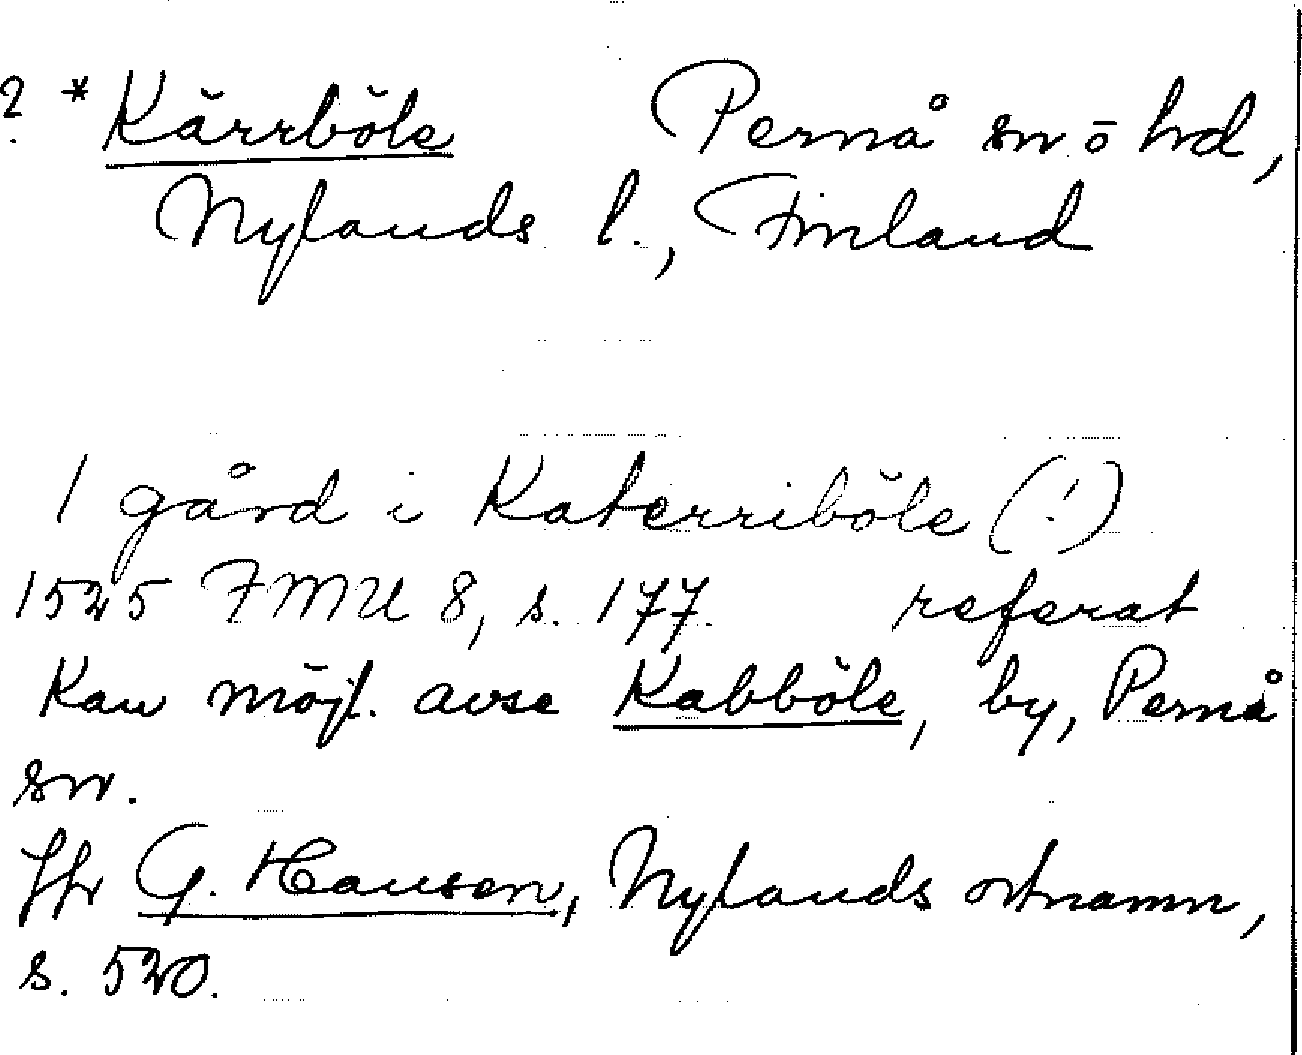 ? * Kärrböle Pernå sn ō hd,
Nylands l., Finland
1 gård i Katerriböle (!)
1525 FMU 8, s. 177. referat
Kan möjl. avse Kabböle, by, Pernå
sn.
Jfr G. Hausen, Nylands ortnamn,
s. 520.